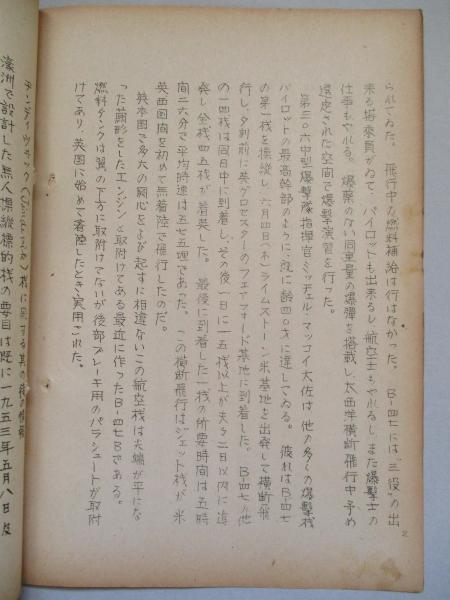 られてゐた。飛行中の燃料補給は行はなかった。B-47には"三役"の出
来る搭乗員がゐて、パイロットも出来るし航空士もやれるし、また爆撃士の
仕事もやれる。爆薬のない同重量の爆弾を搭載し太西洋横断飛行中予め
選定された空間で爆撃演習を行った。
第三〇六中型爆撃隊指揮官ミッチェル・マッコイ大佐は他の多くの爆撃機
パイロットの最高幹部のように既に齢四〇才に達してゐる。彼れはB-47
の第一機を操縦し、六月四日(木)ライムストーン米基地を出発して横断飛
行し、夕刻前に英グロセスターのフェアフォード基地に到着した。B-47の他
の一四機は同日中に到着し、その後一日に一五機以上が夫々二日以内に追
発し全機四五機が着英した。最後に到着した一機の所要時間は五時
間二六分で平均時速は五七五哩であった。この横断飛行はジェット機が米
英両国間を初めて無着陸で飛行したのだ。
英本国で多大の関心をよび起すに相違ないこの航空機は尖端が平にな
った繭形をしたエンジンと取附けてある最近に作ったB-47Bである。
燃料タンクは翼の下方に取附けてないが後部ブレーキ用のパラシュートが取附
けてあり、英国に始めて着陸したとき実用された。
機に関する其の後の情報
濠洲で設計した無人操縦標的機の要目は既に一九五三年五月八日及
2